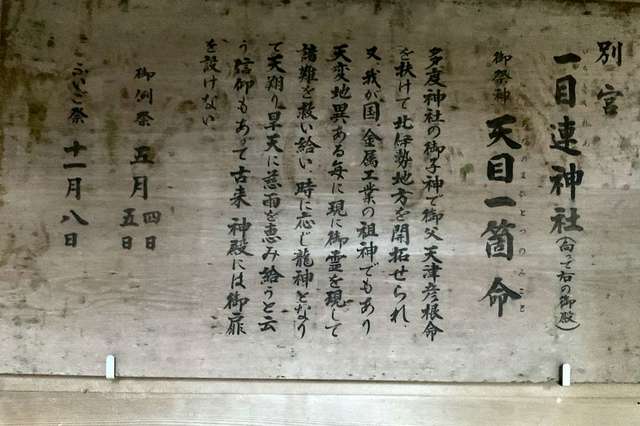 別宮
一目連神社(向って右の御殿)
御祭神 天目一箇命
多度神社の御子神で御父天津彦根命
を扶けて北伊勢地方を開拓せられ、
又我が国金属工業の祖神でもあり
天変地異ある毎に現に御霊を現して
諸難を救い給い、時に応じ龍神となり
て天翔り旱天に慈雨を恵み給うと云
う信仰もあって古来神殿には御扉
を設けない
御例祭 五月四日
五日
ふいご祭 十一月八日